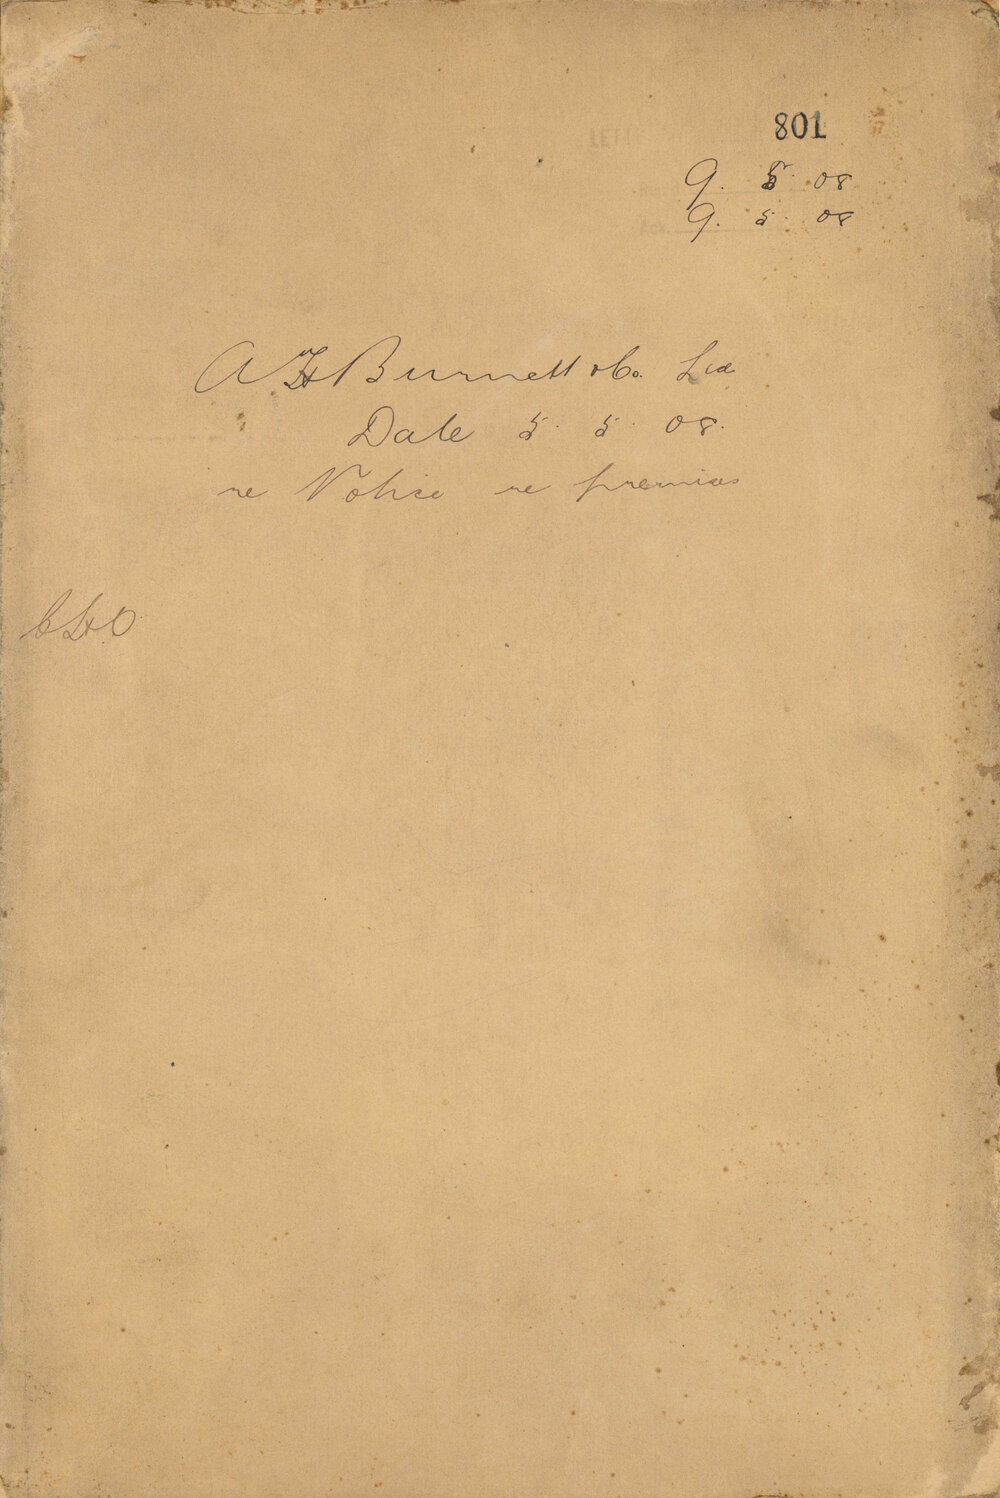 801
9. 5. 08
9. 5. 08
A H Burnett & Co. Ltd
Date 5. 5. 08.
re Notice re premises